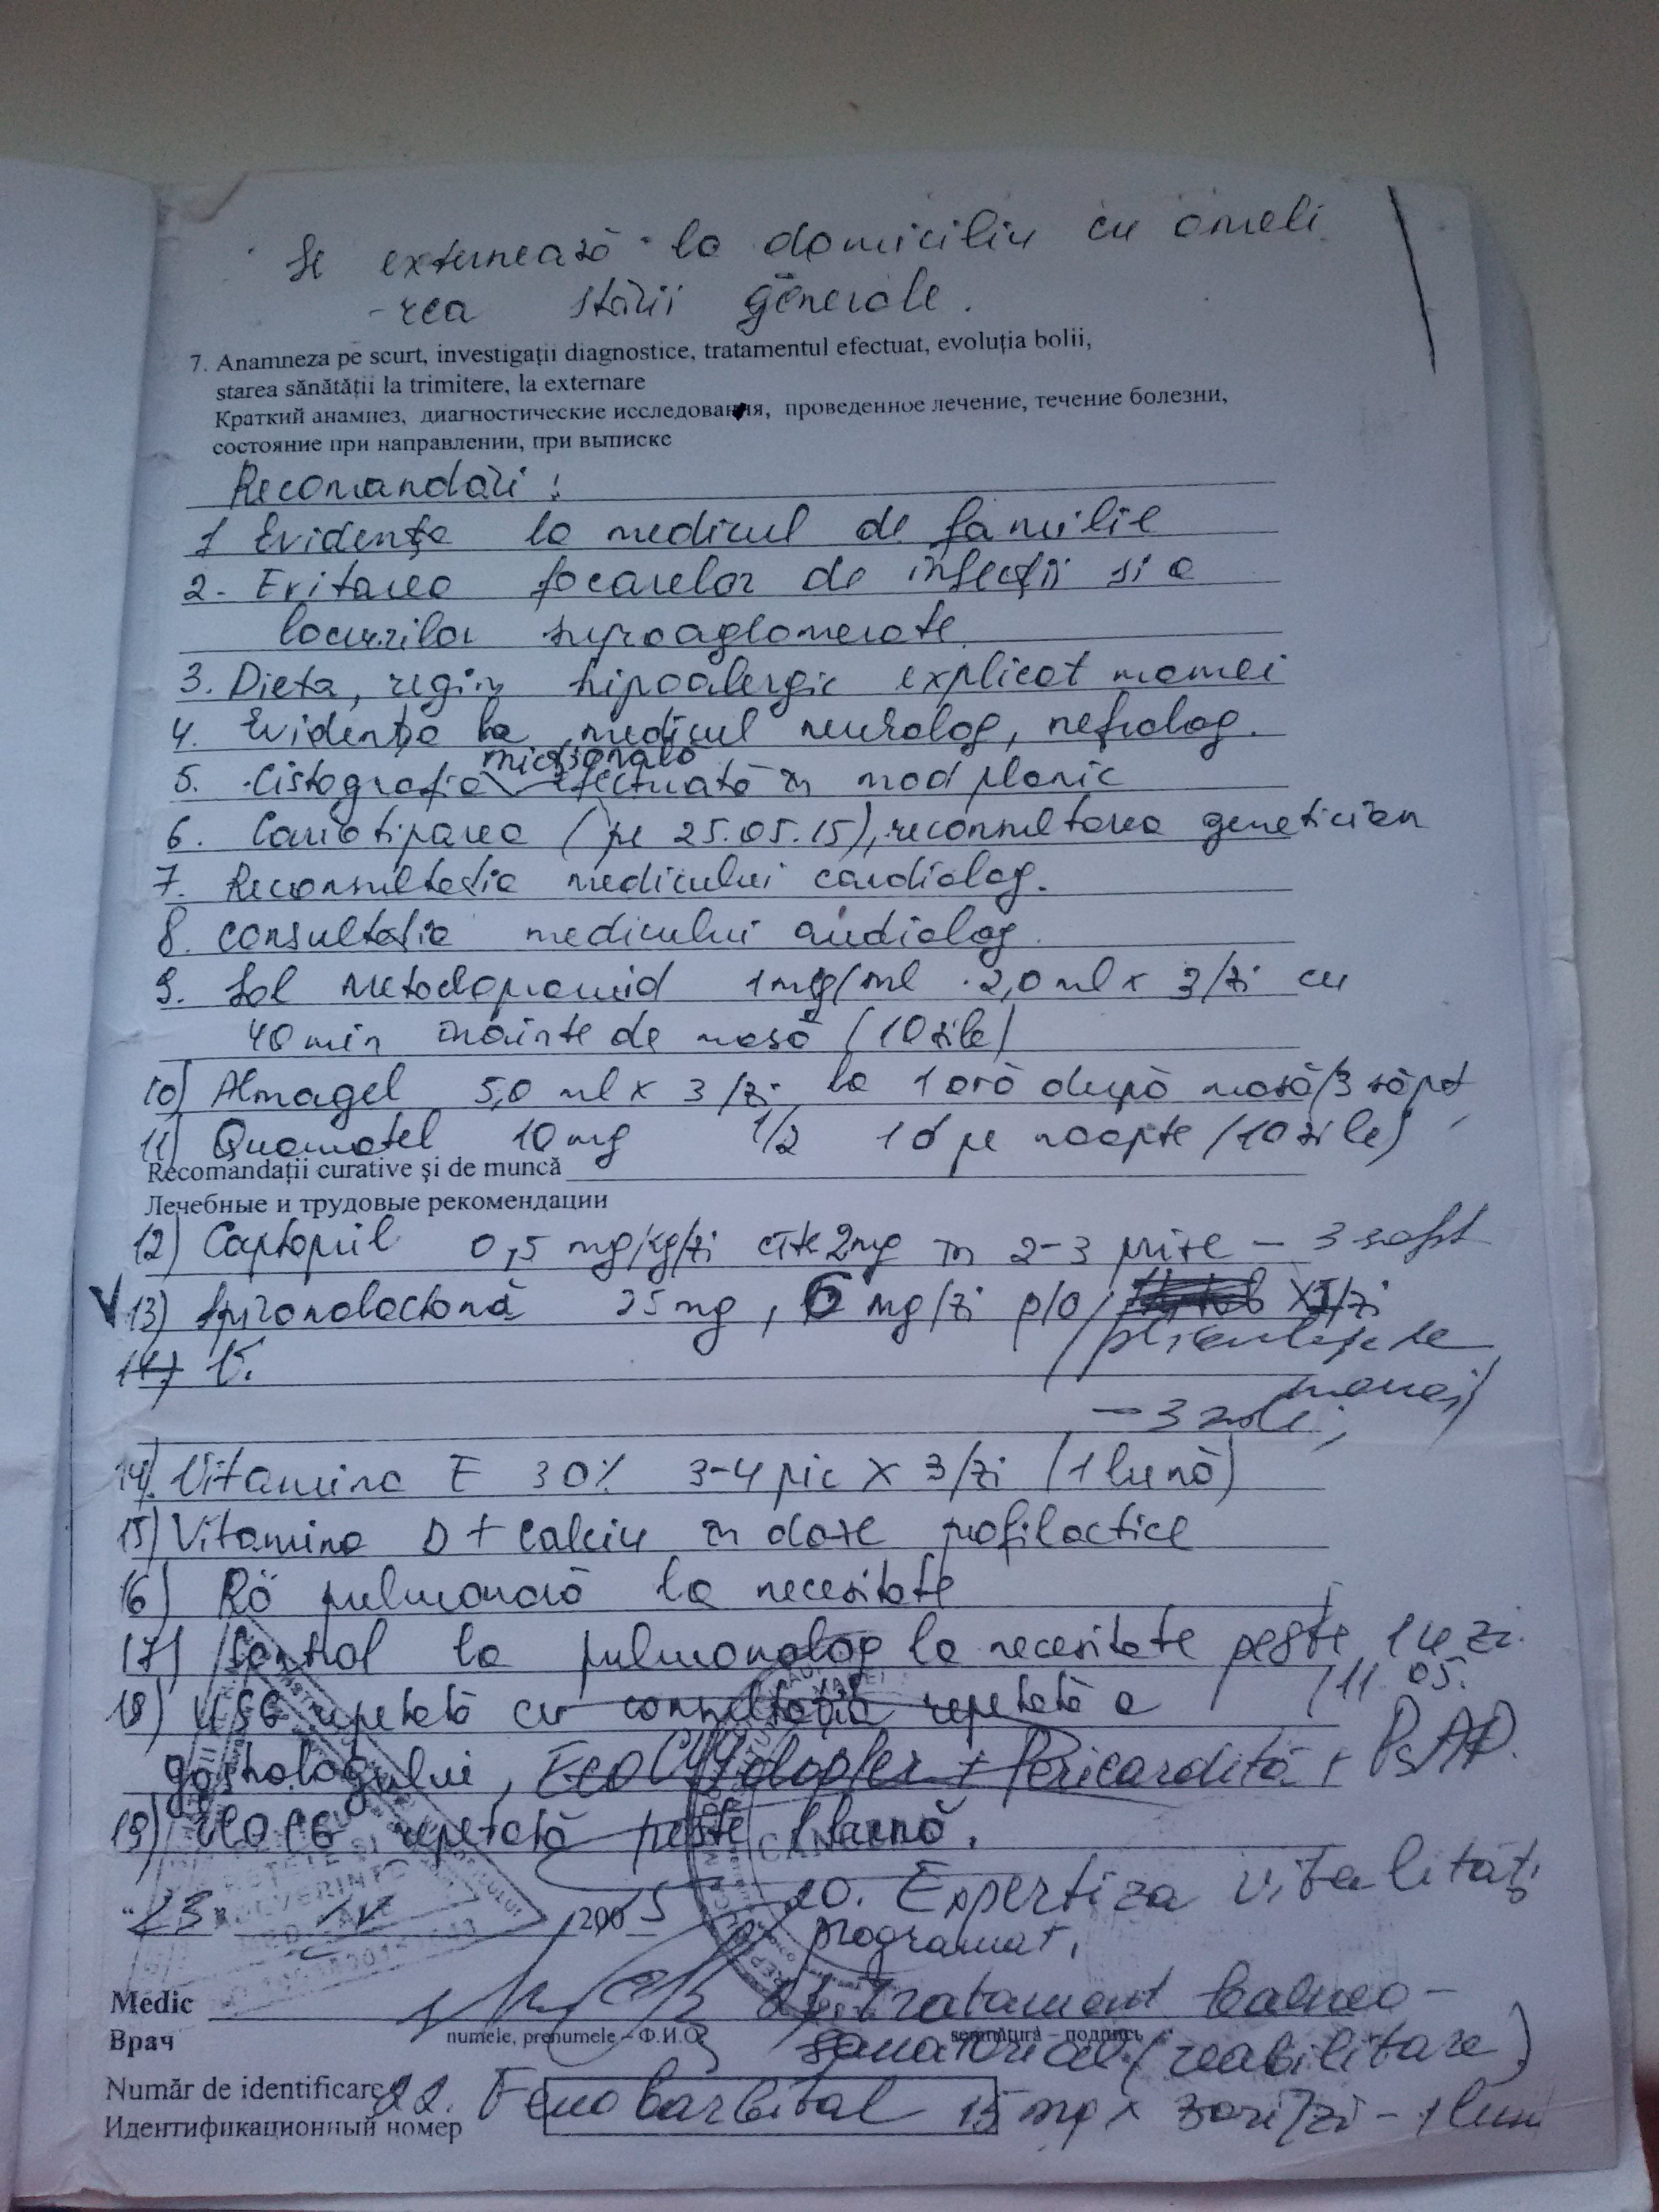 Se externează la domiciliu cu ameli
-rea stării generale.
7. Anamneza pe scurt, investigații diagnostice, tratamentul efectuat, evoluția bolii,
starea sănătății la trimitere, la externare
Краткий анамнез, диагностические исследования, проведенное лечение, течение болезни,
состояние при направлении, при выписке
Recomandări:
1 Evidența la medicul de familie
2. Evitarea focarelor de infecții si a
locurilor supraaglomerate
3. Dieta, regim hipoalergic explicat mamei
4. Evidența la medicul neurolog, nefrolog.
micțională
5. Cistografia efectuată în mod planic
6. Cariotiparea (pe 25.05.15), reconsultarea genetician
7. Reconsultația medicului cardiolog.
8. consultația medicului audiolog.
9. Sol Metoclopramid 1mg/ml 2,0 ml x 3/zi cu
40 min înainte de masă (10 zile)
10) Almagel 5,0 ml x 3/zi la 1 oră după masă/3 săpt,
11) Quamatel 10 mg 1/2 1d pe noapte (10 zile)
Recomandații curative și de muncă
Лечебные и трудовые рекомендации
12) Captopril 0,5 mg/kg/zi cîte 2mg în 2-3 prize - 3 sapt
V 13) Spironolactonă 25 mg, 6 mg/zi p/o
14)
14) Vitamina E 30% 3-4 pic x 3/zi (1 lună)
15) Vitamina D + calciu în doze profilactice
16) Rö pulmonară la necesitate
17) Control la pulmonolog la necesitate peste 14 zi.
/11.05.
18) USG repetată cu consultația repetată a
gastrologului, EcoCG doppler + Pericardită + PsAP.
19) repetată peste 1 lună.
20. Expertiza vitalități
programat.
"23" IV 2005
21. Tratament balneo-
sanatorial (reabilitare)
Medic
Врач
numele, prenumele – Ф.И.О.
semnătură – подпись
Număr de identificare
Идентификационный номер
22. Fenobarbital 15 mg x 3 ori/zi - 1 lună